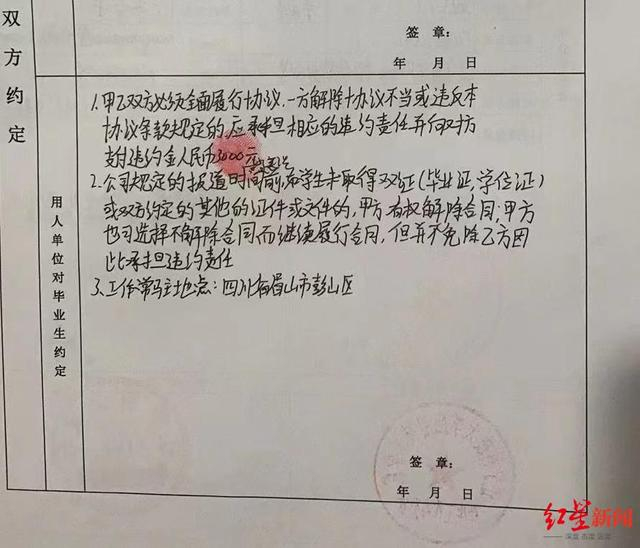 签 章：
年 月 日
双方约定
用人单位对毕业生约定
1.甲乙双方必须全面履行协议.一方解除协议不当或违反本
协议条款规定的,应承担相应的违约责任并向对方
支付违约金人民币3000元
2.公司规定的报道时间前,若学生未取得双证(毕业证,学位证)
或双方约定的其他的证件或文件的,甲方有权解除合同;甲方
也可选择不解除合同而继续履行合同,但并不免除乙方因
此承担违约责任
3.工作常驻地点:四川省眉山市彭山区
签 章：
年 月 日
红星新闻
深度 态度 温度